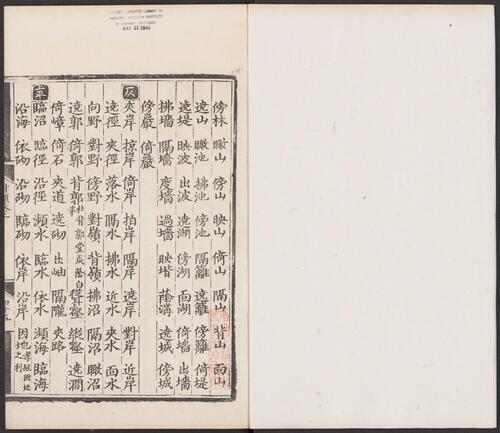 傍林 瞰山 傍山 映山 倚山 隔山 背山 面山
遶山 瞰池 拂池 傍池 隔籬 遶籬 傍籬 倚堤
遶堤 映波 出波 遶湖 傍湖 面湖 倚墻 出墻
拂墻 隔墻 度墻 過墻 映堦 蔭溝 遶城 傍城
傍巖 倚巖
仄
夾岸 掠岸 倚岸 拍岸 隔岸 遶岸 對岸 近岸
遶徑 夾徑 落水 隔水 拂水 近水 夾水 面水
向野 對野 傍野 對嶺 背嶺 拂沼 隔沼 瞰沼
遶郭 倚郭 背郭 背郭堂成蔭白 縱壑 遶澗
倚嶂 倚石 夾道 遶砌 出岫 隔隴 夾路
臨沼 臨徑 沿徑 瀕水 臨水 依水 瀕海 臨海
沿海 依砌 沿砌 臨砌 依岸 沿岸 因地 孝經因地之利
MAY 23 1940